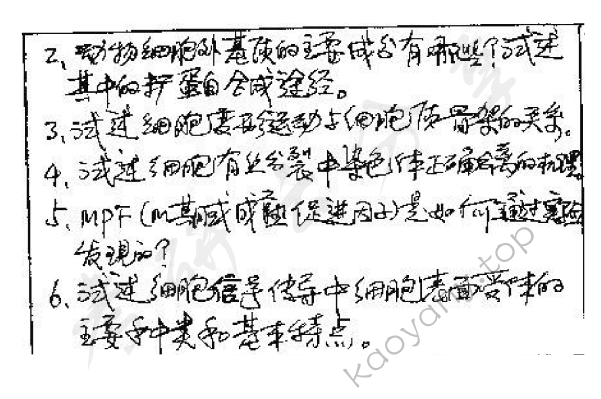 2、动物细胞外基质的主要成分有哪些?试述
其中的 蛋白合成途径。
3、试述细胞变形运动与细胞质骨架的关系。
4、试述细胞有丝分裂中染色体正确分离的机理。
5、MPF(M期或成熟促进因子)是如何通过实验
发现的?
6、试述细胞信号传导中细胞表面受体的
主要种类和基本特点。
kaoyany.top